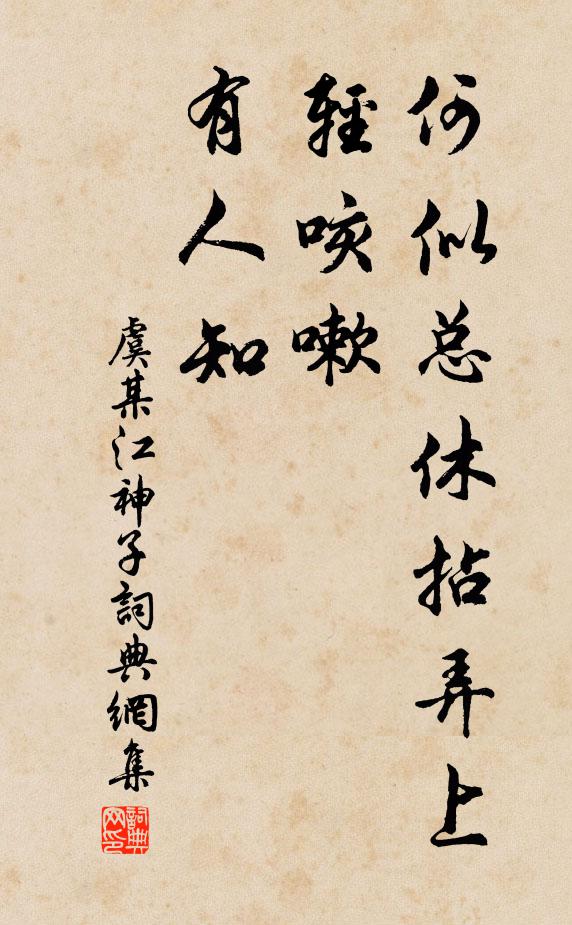 何似总休拈弄上
輕咳嗽
有人知
虞某江神子詞典網集
詞典網印